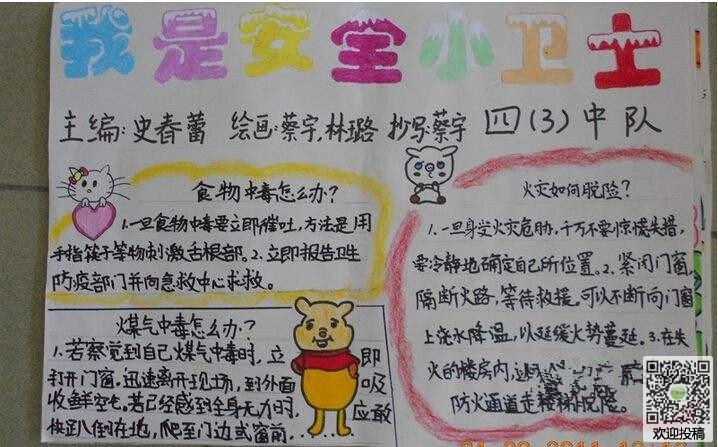 我是安全小卫士
主编:史春蕾 绘画:蔡宇,林璐 抄写:蔡宇 四(3)中队
食物中毒怎么办?
1.一旦食物中毒要立即催吐,方法是用
手指筷子等物刺激舌根部。2.立即报告卫生
防疫部门并向急救中心求救。
煤气中毒怎么办?
1.若察觉到自己煤气中毒时,立即
打开门窗。迅速离开现场,到外面吸
收鲜空气。若已经感到全身无力时,应敢
快趴倒在地,爬至门边或窗前......
火灾如何脱险?
1.一旦身受火灾危胁,千万不要惊慌失措,
要冷静地确定自己所位置。2.紧闭门窗
隔断火路,等待救援。可以不断向门窗
上浇水降温,以延缓火势蔓延。3.在失
火的楼房内,
防火通道走楼梯脱险。
欢迎投稿